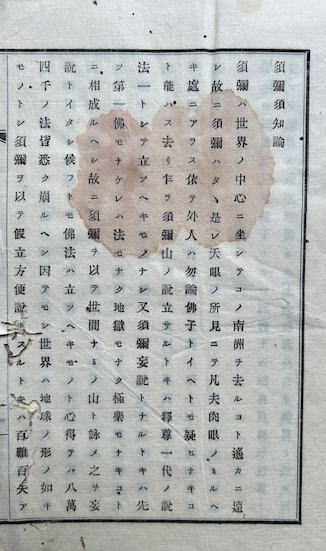 須彌須知論
須彌ハ世界ノ中心ニ坐シテコノ南洲ヲ去ルコト遙カニ遠
シ故ニ須彌ハタヽ是レ天眼ノ所見ニテ凡夫肉眼ノミルヘ
キ處ニアラス依テ外人ハ勿論佛子トイヘトモ疑ヒナキコ
ト能ハス去リ乍ラ須彌山ノ說立サルトキハ釋尊一代ノ說
法一トシテ立ツヘキモノナシ又須彌妄說トナルトキハ先
ツ第一佛モナケレハ法モナク地獄モナク極樂モナキコト
ニ相成ルヘシ故ニ須彌ヲ以テ世間ナミノ山ト詠メ之ヲ妄
說トイタシ候フトモ佛法ハ立ツヘキモノト心得テハ八萬
四千ノ法皆悉ク崩ルヘシ因テモシ世界ハ地球ノ形ノ如キ
モノトシ須彌ヲ以テ假立方便說トスルトキハ百難百矢ア